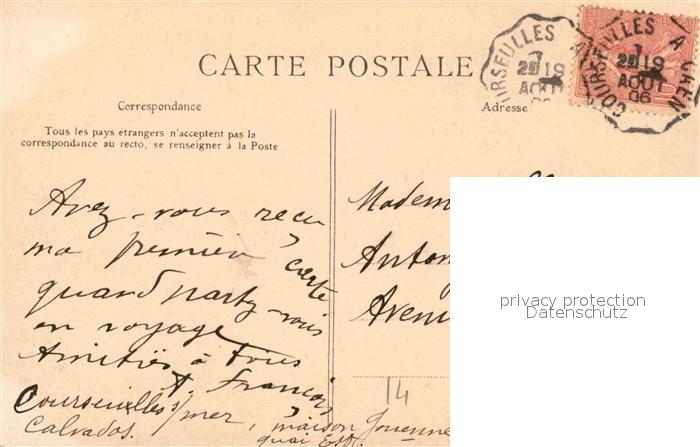 CARTE POSTALE
COURSEULLES A CAEN
7
2E 19
AOUT
06
Correspondance
Adresse
Tous les pays etrangers n'acceptent pas la
correspondance au recto, se renseigner à la Poste
Avez-vous reçu
ma premièr carte
quand partez-vous
en voyage
Amitiés à tous
A. François
Courseulles s/mer, maison Jouenne
Calvados. quai Est.
Madem
Antony
Avenu
14
privacy protection
Datenschutz